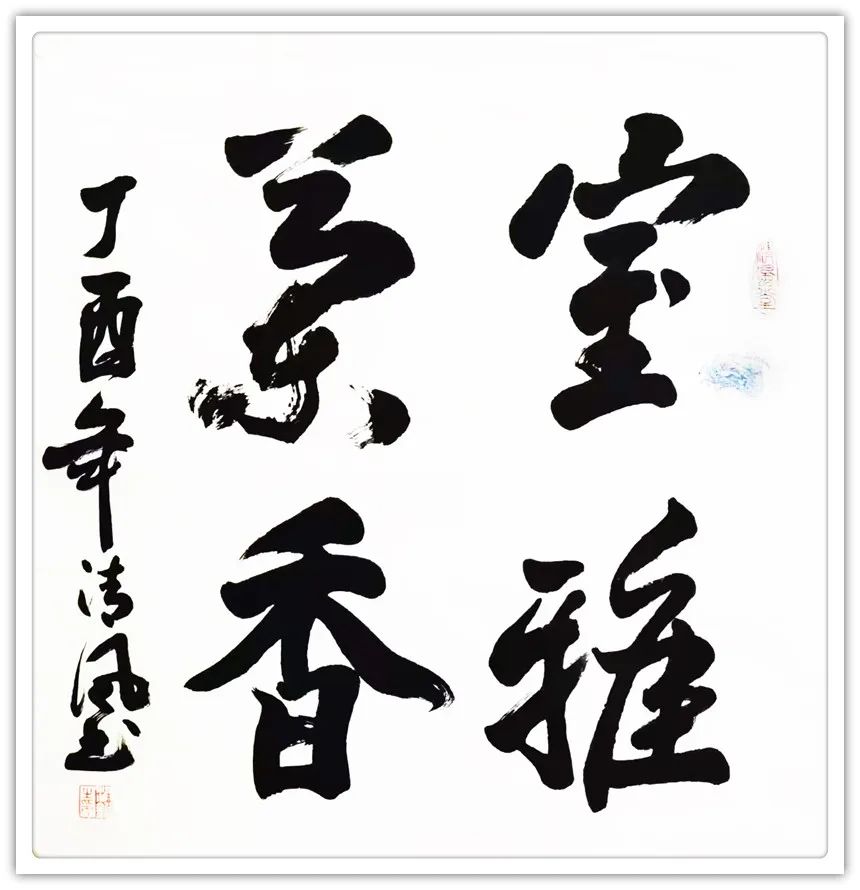 室雅
兰香
丁酉年清风书